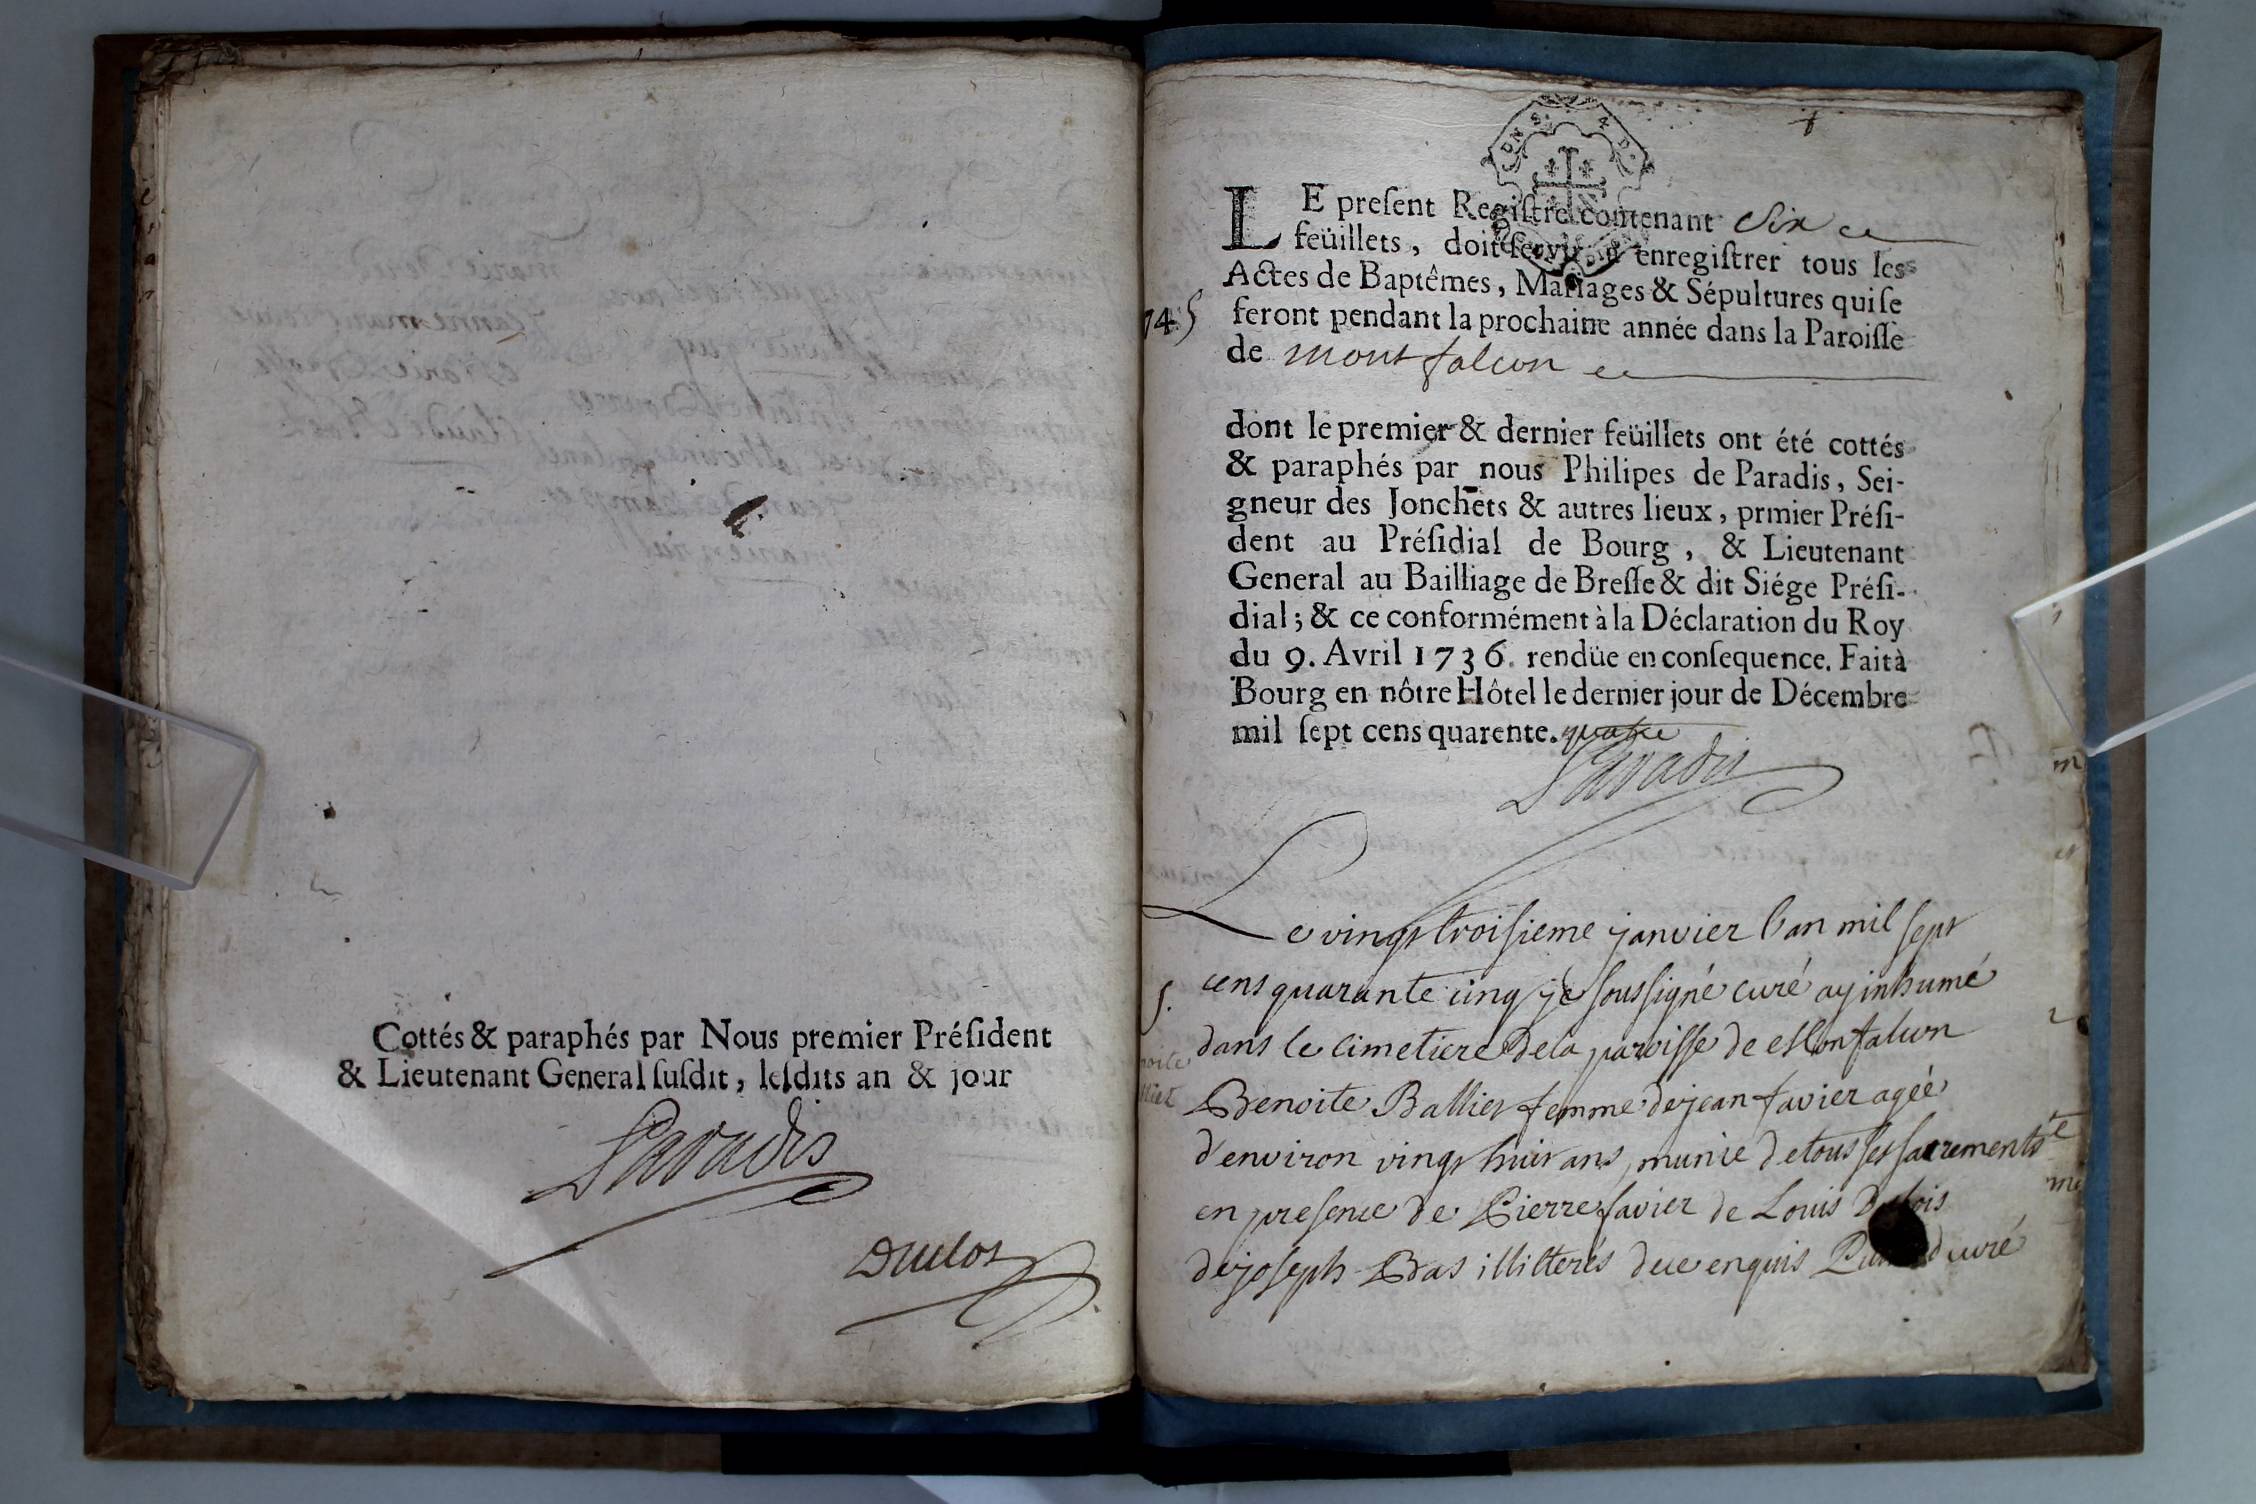 Cottés & paraphés par Nous premier Préſident
& Lieutenant General ſuſdit, leſdits an & jour
Paradis
Duclos
LE preſent Regiſtre contenant Six
feüillets, doit ſervir à enregiſtrer tous les
Actes de Baptêmes, Mariages & Sépultures qui ſe
feront pendant la prochaine année dans la Paroiſſe
de montfalcon
745
dont le premier & dernier feüillets ont été cottés
& paraphés par nous Philipes de Paradis, Sei-
gneur des Jonchets & autres lieux, prmier Préſi-
dent au Préſidial de Bourg, & Lieutenant
General au Bailliage de Breſſe & dit Siége Préſi-
dial; & ce conformément à la Déclaration du Roy
du 9. Avril 1736. rendüe en conſequence. Fait à
Bourg en nôtre Hôtel le dernier jour de Décembre
mil ſept cens quarente. quatre
Paradis
Le vingt troiſieme janvier l'an mil ſept
cens quarante cinq je ſousſigné curé ay inhumé
dans le cimetiere de la paroiſſe de Monfalcon
Benoite Balliet femme de jean favier agée
d'environ vingt huit ans, munie de tous ſes ſacrements
en preſence de Pierre favier de Louis Dubois
de joseph Bas illitterés de ce enquis curé